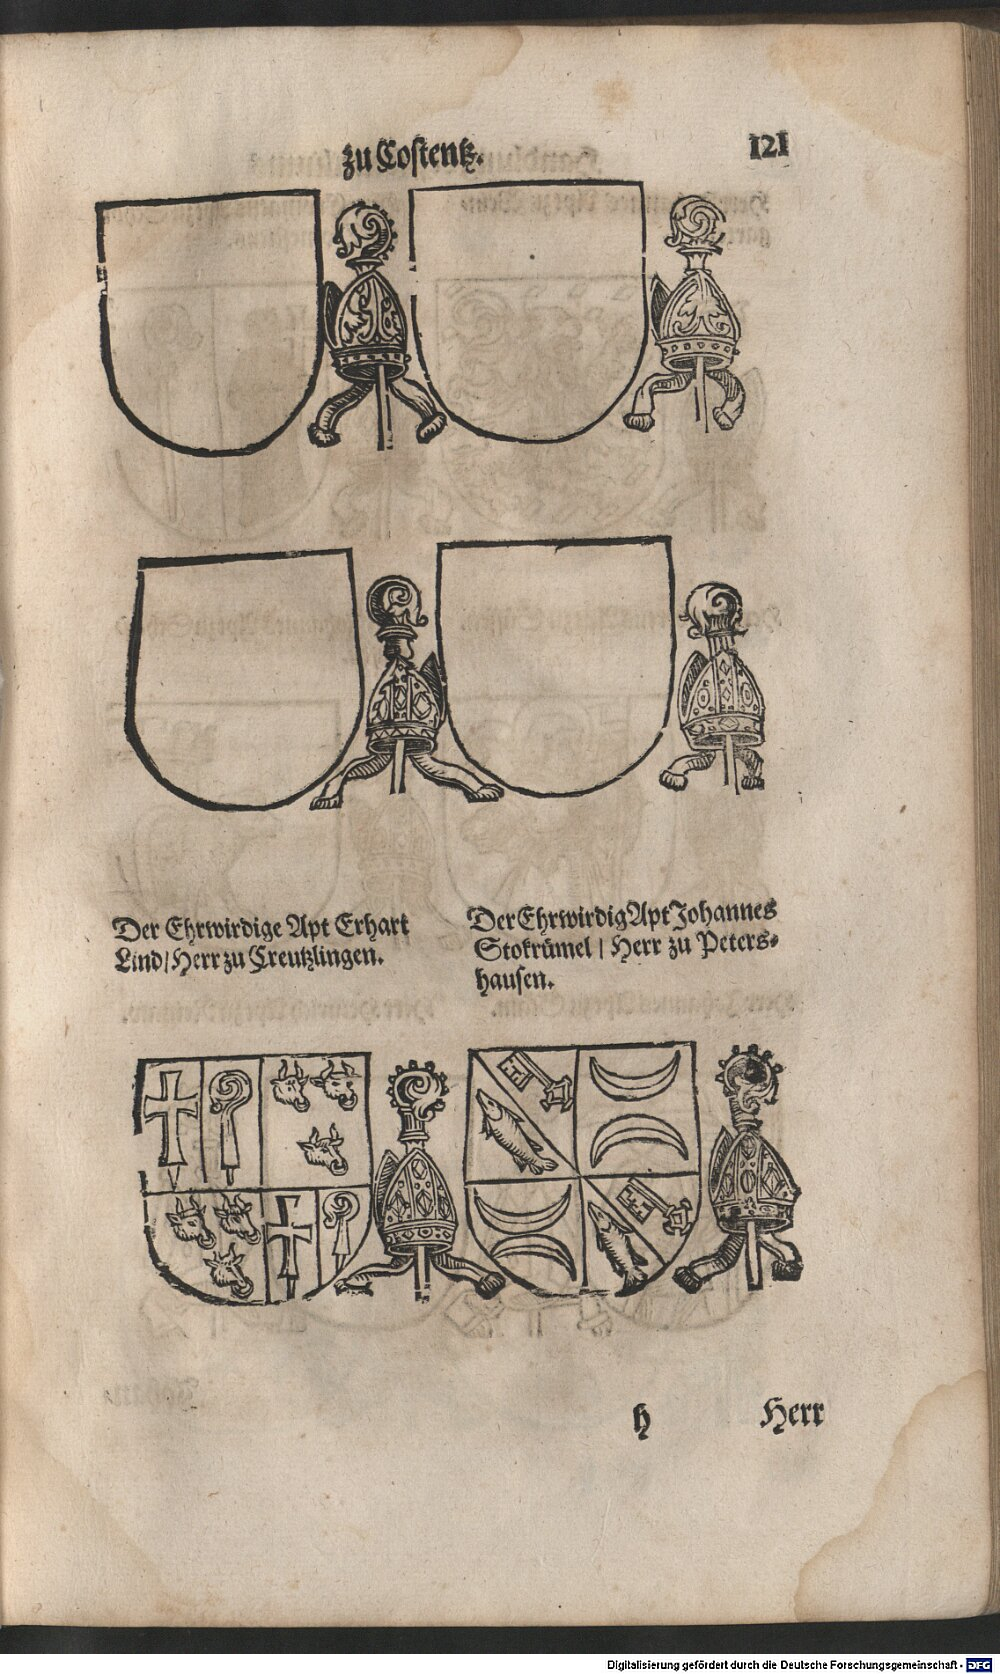 zu Costentz.
121
Der Ehrwirdige Apt Erhart
Lind/Herr zu Creutzlingen.
Der Ehrwirdig Apt Johannes
Stokrümel / Herr zu Peters⸗
hausen.
h
Herr
Digitalisierung gefördert durch die Deutsche Forschungsgemeinschaft - DFG